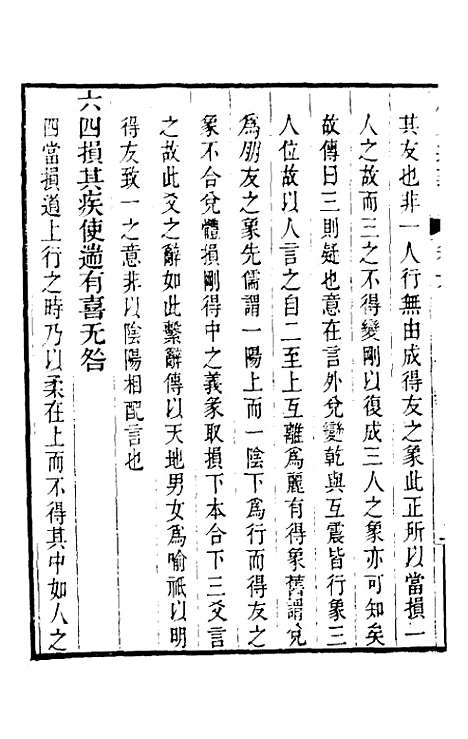 其友也非一人行無由成得友之象此正所以當損一
人之故而三之不得變剛以復成三人之象亦可知矣
故傳曰三則疑也意在言外兌變乾與互震皆行象三
人位故以人言之自二至上互離爲麗有得象舊謂兌
爲朋友之象先儒謂一陽上而一陰下爲行而得友之
象不合兌體損剛得中之義象取損下本合下三爻言
之故此爻之辭如此繫辭傳以天地男女爲喻祗以明
得友致一之意非以陰陽相配言也
六四損其疾使遄有喜无咎
四當損道上行之時乃以柔在上而不得其中如人之